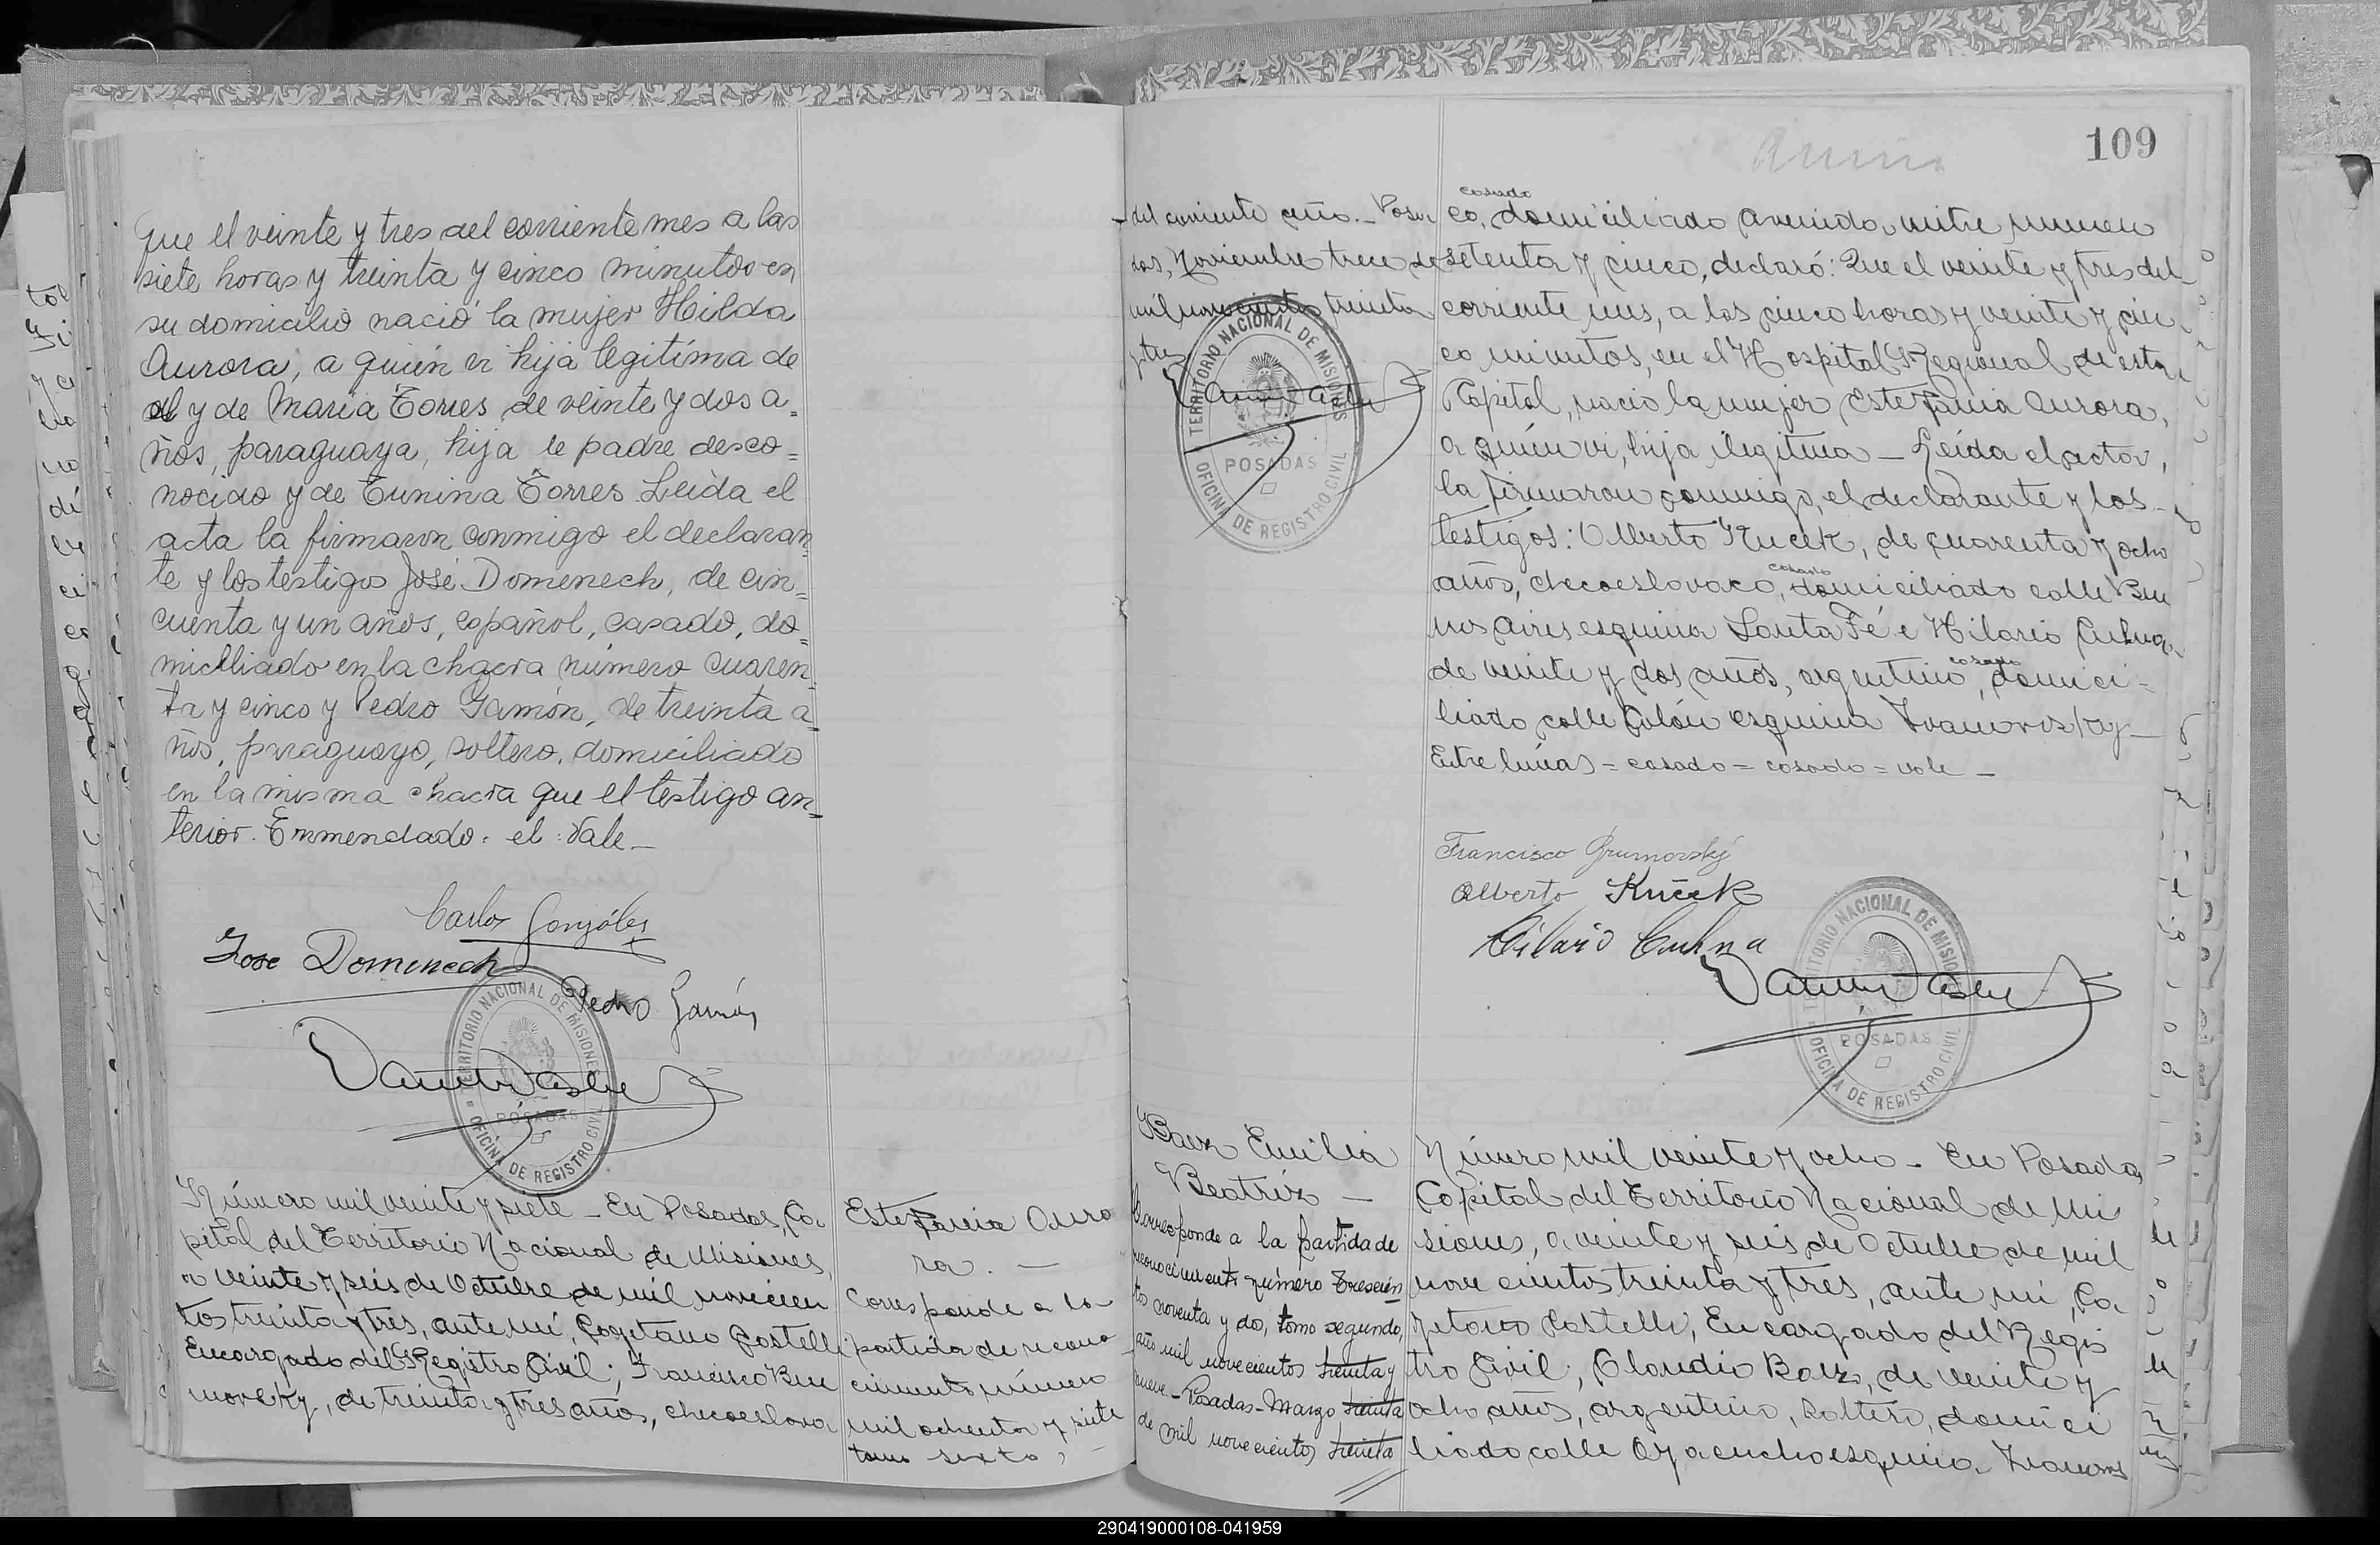 que el veinte y tres del corriente mes a las
siete horas y treinta y cinco minutos en
su domicilio nació la mujer Hilda
Aurora, a quién vi hija legitíma de
él y de María Torres de veinte y dos a=
ños, paraguaya, hija de padre desco=
nocido y de Tunina Torres. Leída el
acta la firmaron conmigo el declaran
te y los testigos José Domenech, de cin=
cuenta y un años, español, casado, do=
micilliado en la chacra número cuaren=
ta y cinco y Pedro Gamón, de treinta a=
ños, paraguayo, soltero, domiciliado
en la misma chacra que el testigo an=
terior. Enmendado: el: Vale_
Carlos González
Jose Domenech
Pedro Gamón
TERRITORIO NACIONAL DE MISIONES
POSADAS
OFICINA DE REGISTRO CIVIL
Número mil veinte y siete - En Posadas, Ca
pital del Territorio Nacional de Misiones,
a veinte y seis de Octubre de mil novecien
tos treinta y tres, ante mí, Cayetano Castelli
Encargado del Registro Civil; Francisco
movsky, de treinta y tres años, checoeslova
Estefania Auro
ra. —
Corresponde a la
partida de recono
cimiento número
mil ochenta y siete
tomo sexto,
109
del corriente año. - Posa
das, Noviembre trece de
mil novecientos treinta
y tres
TERRITORIO NACIONAL DE MISIONES
POSADAS
OFICINA DE REGISTRO CIVIL
casado
co, domiciliado avenida mitre número
setenta y cinco, declaró: Que el veinte y tres del
corriente mes, a las cinco horas y veinte y cin
co minutos, en el Hospital Regional de esta
Capital, nació la mujer Estefania Aurora,
a quién vi, hija ilegítima - Leída el acta,
la firmaron conmigo, el declarante y los
testigos: Alberto Kucek, de cuarenta y ocho
casado
años, checoeslovaco, domiciliado calle Bue
nos Aires esquina Santa Fé e Hilario Cuhna
casado
de veinte y dos años, argentino, domici-
liado calle Colón esquina
Entre líneas = casado = casado = vale -
Francisco
Alberto Kuček
Hilario Cuhna
TERRITORIO NACIONAL DE MISIONES
POSADAS
OFICINA DE REGISTRO CIVIL
Baez Emilia
Beatriz —
Corresponde a la partida de
reconocimiento número trescien
tos noventa y dos, tomo segundo,
año mil novecientos treinta y
nueve - Posadas - Marzo treinta
de mil novecientos treinta
Número mil veinte y ocho - En Posadas
Capital del Territorio Nacional de Mi
siones, a veinte y seis de Octubre de mil
novecientos treinta y tres, ante mí, Ca
yetano Castelli, Encargado del Regis
tro Civil; Claudio Baez, de veinte y
ocho años, argentino, soltero, domici
liado calle Ayacucho esquina
290419000108-041959